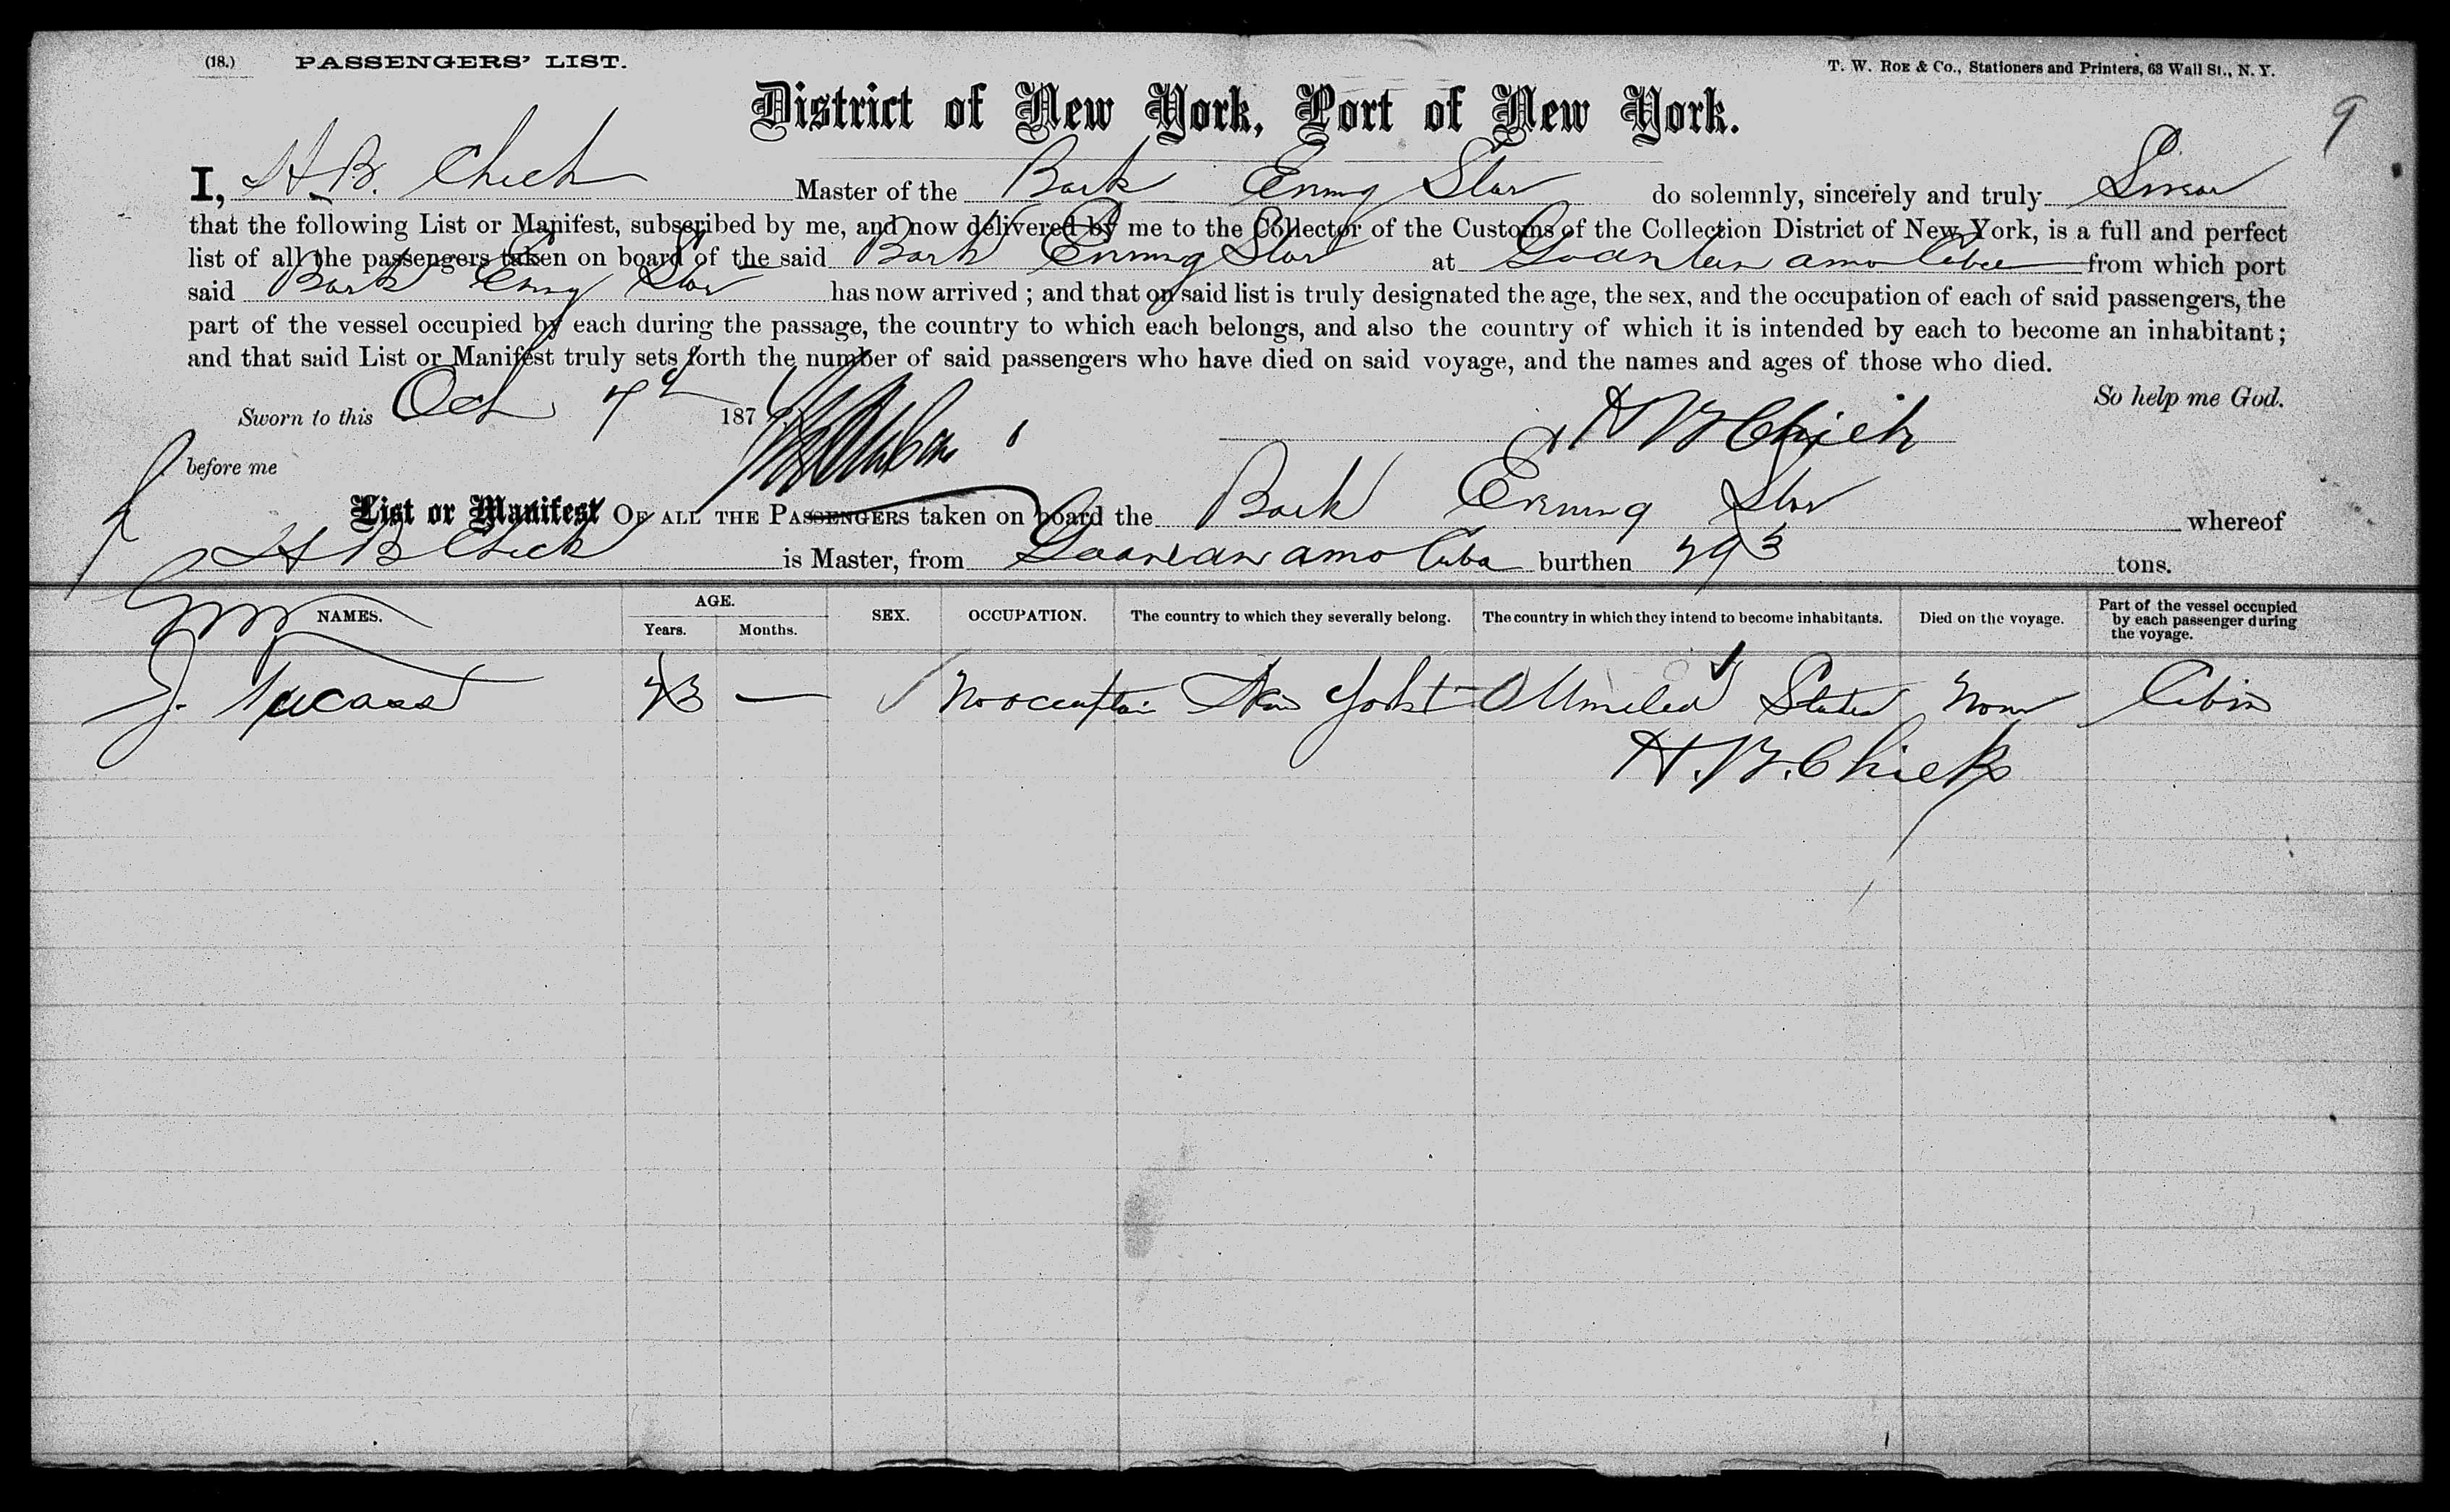 (18.) PASSENGERS' LIST. T. W. ROE & Co., Stationers and Printers, 63 Wall St., N. Y.
District of New York, Port of New York.
9
I, H B. Chick Master of the Bark Evening Star do solemnly, sincerely and truly Swear
that the following List or Manifest, subscribed by me, and now delivered by me to the Collector of the Customs of the Collection District of New York, is a full and perfect
list of all the passengers taken on board of the said Bark Evening Star at Guantanamo Cuba from which port
said Bark Eving Star has now arrived ; and that on said list is truly designated the age, the sex, and the occupation of each of said passengers, the
part of the vessel occupied by each during the passage, the country to which each belongs, and also the country of which it is intended by each to become an inhabitant ;
and that said List or Manifest truly sets forth the number of said passengers who have died on said voyage, and the names and ages of those who died.
So help me God.
Sworn to this Oct 7th 187 H B Chick
before me
List or Manifest OF ALL THE PASSENGERS taken on board the Bark Evening Star whereof
H B Chick is Master, from Guantanamo Cuba burthen tons.
NAMES. AGE. Years. Months. SEX. OCCUPATION. The country to which they severally belong. The country in which they intend to become inhabitants. Died on the voyage. Part of the vessel occupied by each passenger during the voyage.
J. — No occuptain New York United States None Cabin
H. B. Chick